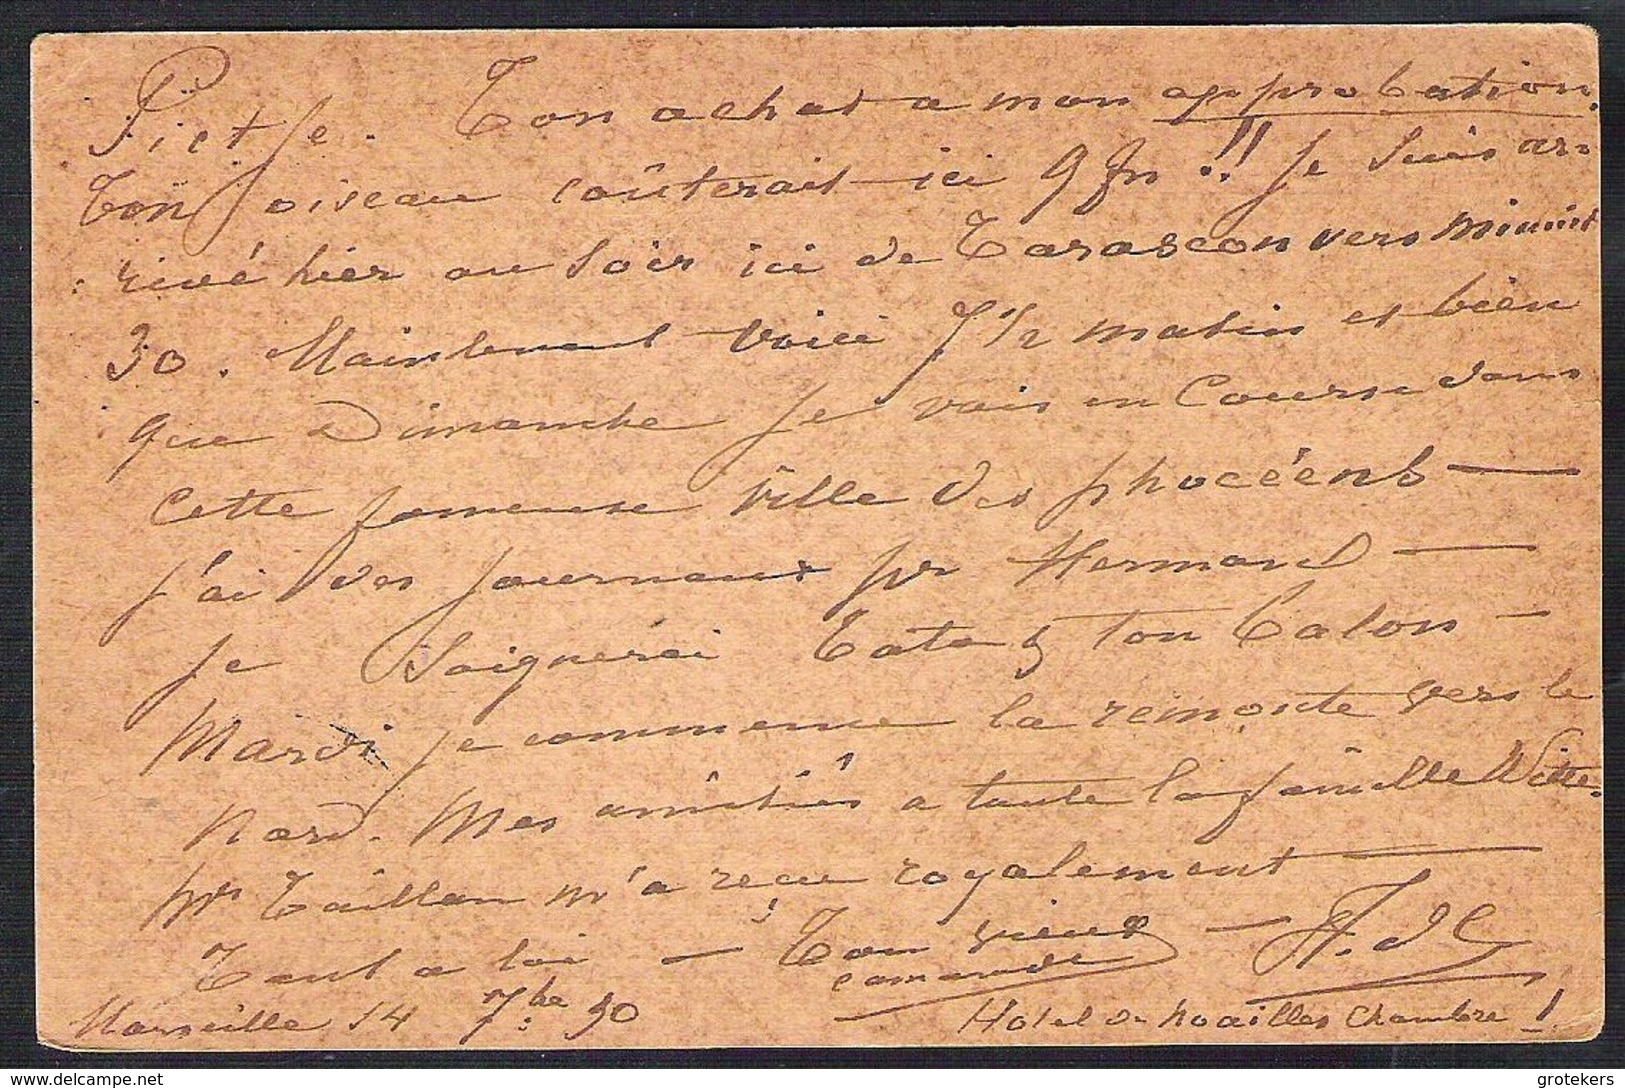 Pietje. Ton achat a mon approbation.
Ton oiseau coûterait ici 9 frs !! Je suis ar-
rivé hier au soir ici de Tarascon vers minuit
30. Maintenant voici 7 1/2 matin et bien
que Dimanche je vais en course dans
cette fameuse ville des phocéens —
j'ai des journaux pr Hermand —
je soignerai ton Colon —
Mardi je commence la remonte vers le
Nord. Mes amitiés a toute la famille Witte.
Mr Taillan m'a reçu royalement —
Tout a toi — Ton vieux —
camarade
Marseille 14 7bre 90 Hotel de Noailles Chambre 1!
delcampe.net
grotekers